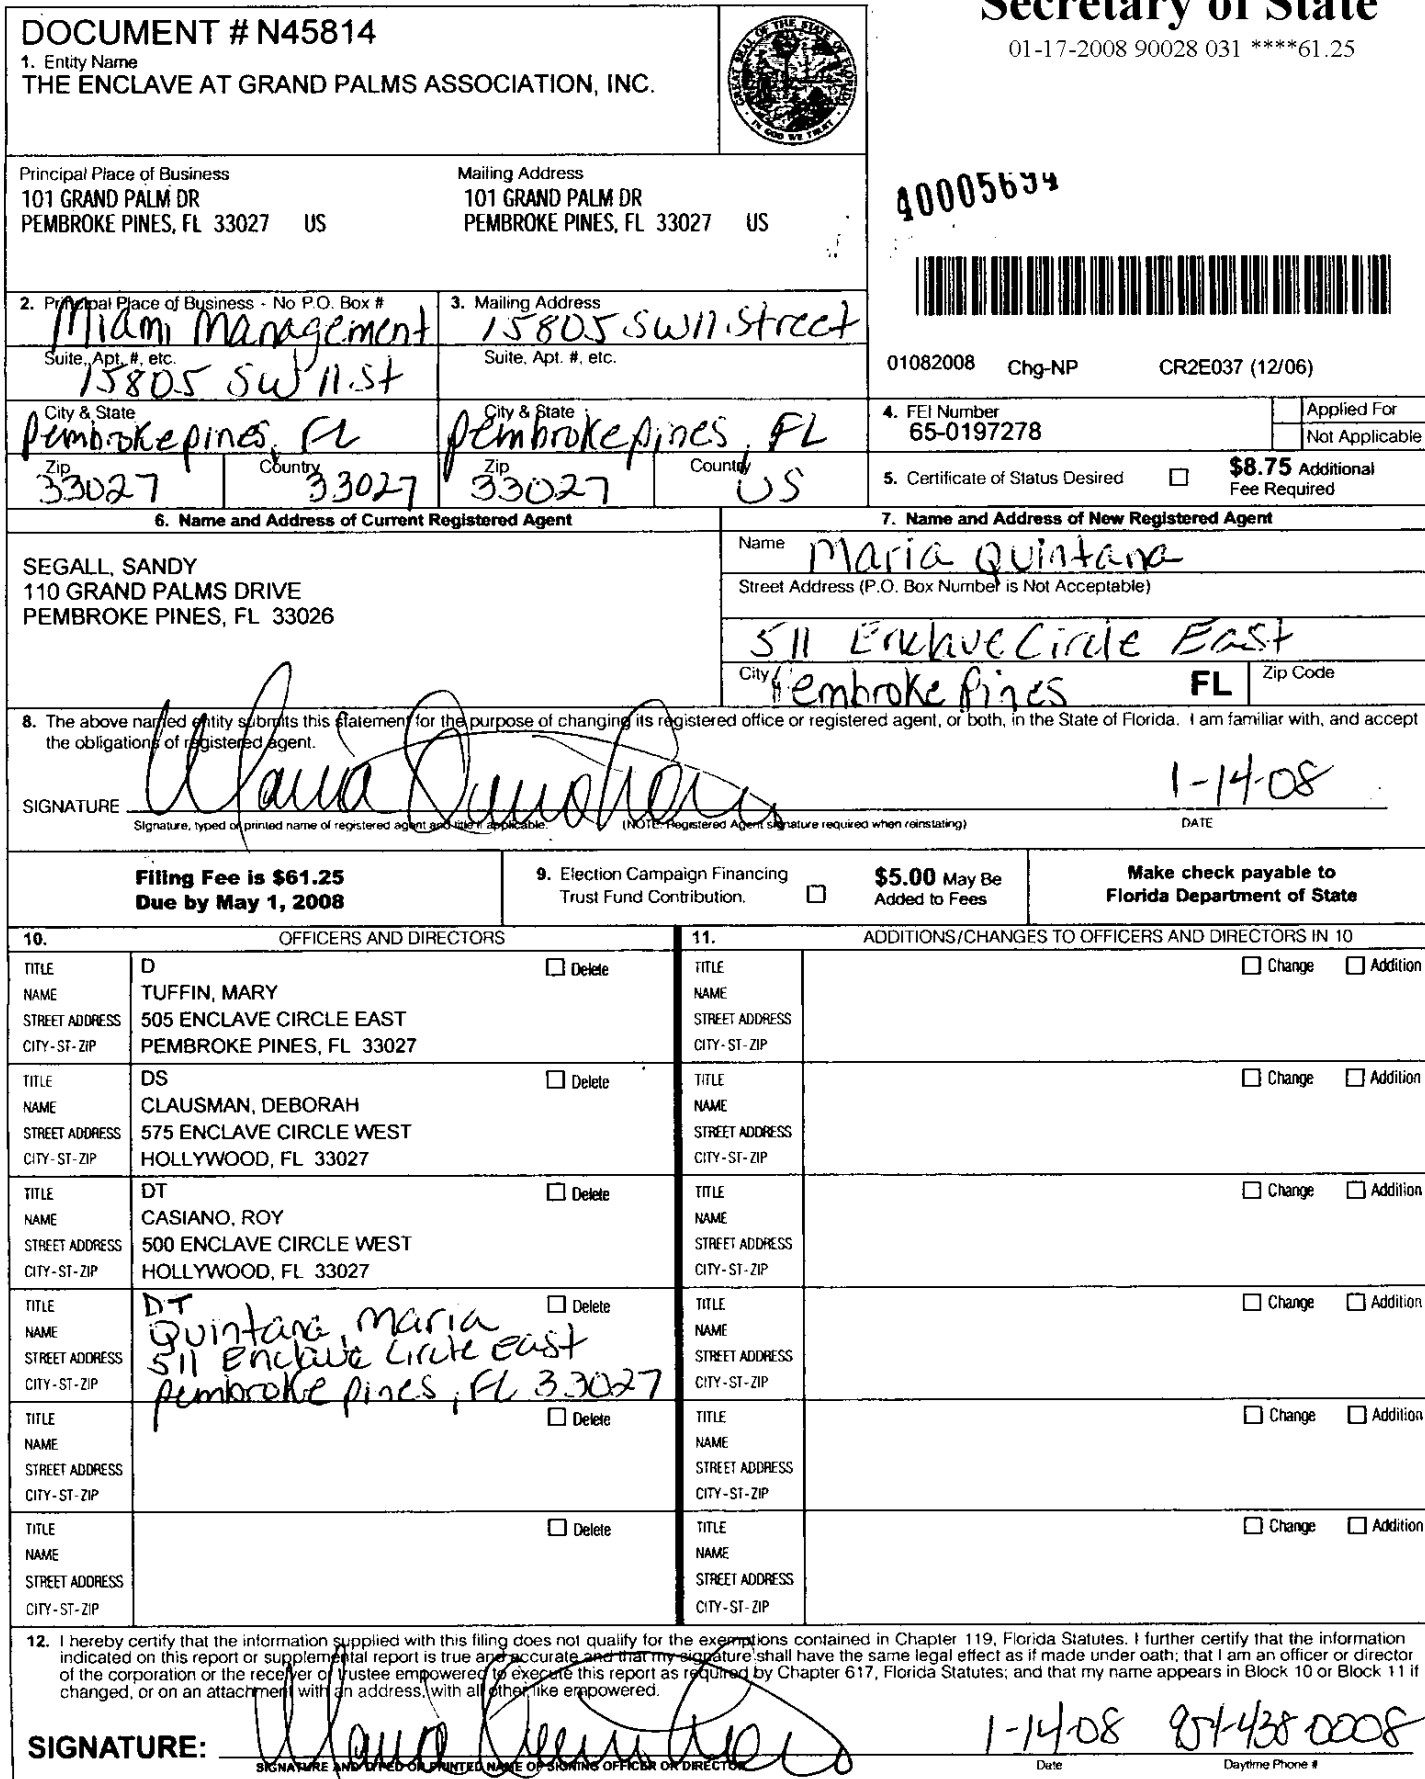 Secretary of State
01-17-2008 90028 031 ****61.25
DOCUMENT # N45814
1. Entity Name
THE ENCLAVE AT GRAND PALMS ASSOCIATION, INC.
GREAT SEAL OF THE STATE OF FLORIDA
IN GOD WE TRUST
Principal Place of Business
101 GRAND PALM DR
PEMBROKE PINES, FL 33027 US
Mailing Address
101 GRAND PALM DR
PEMBROKE PINES, FL 33027 US
40005694
2. Principal Place of Business - No P.O. Box #
Miami Management
Suite, Apt. #, etc.
15805 SW 11.St
City & State
Pembroke pines, FL
Zip
33027
Country
33027
3. Mailing Address
15805 SW 11.Street
Suite, Apt. #, etc.
City & State
Pembroke pines, FL
Zip
33027
Country
US
01082008 Chg-NP CR2E037 (12/06)
4. FEI Number
65-0197278
Applied For
Not Applicable
5. Certificate of Status Desired
$8.75 Additional
Fee Required
6. Name and Address of Current Registered Agent
SEGALL, SANDY
110 GRAND PALMS DRIVE
PEMBROKE PINES, FL 33026
7. Name and Address of New Registered Agent
Name Maria Quintana
Street Address (P.O. Box Number is Not Acceptable)
511 Enclave Circle East
City Pembroke Pines FL Zip Code
8. The above named entity submits this statement for the purpose of changing its registered office or registered agent, or both, in the State of Florida. I am familiar with, and accept
the obligations of registered agent.
SIGNATURE 1-14-08
Signature, typed or printed name of registered agent and title if applicable. (NOTE: Registered Agent signature required when reinstating) DATE
Filing Fee is $61.25
Due by May 1, 2008
9. Election Campaign Financing
Trust Fund Contribution.
$5.00 May Be
Added to Fees
Make check payable to
Florida Department of State
10. OFFICERS AND DIRECTORS
11. ADDITIONS/CHANGES TO OFFICERS AND DIRECTORS IN 10
TITLE D Delete
NAME TUFFIN, MARY
STREET ADDRESS 505 ENCLAVE CIRCLE EAST
CITY-ST-ZIP PEMBROKE PINES, FL 33027
TITLE Change Addition
NAME
STREET ADDRESS
CITY-ST-ZIP
TITLE DS Delete
NAME CLAUSMAN, DEBORAH
STREET ADDRESS 575 ENCLAVE CIRCLE WEST
CITY-ST-ZIP HOLLYWOOD, FL 33027
TITLE Change Addition
NAME
STREET ADDRESS
CITY-ST-ZIP
TITLE DT Delete
NAME CASIANO, ROY
STREET ADDRESS 500 ENCLAVE CIRCLE WEST
CITY-ST-ZIP HOLLYWOOD, FL 33027
TITLE Change Addition
NAME
STREET ADDRESS
CITY-ST-ZIP
TITLE DT Delete
NAME Quintana, Maria
STREET ADDRESS 511 Enclave Circle East
CITY-ST-ZIP pembroke pines, FL 33027
TITLE Change Addition
NAME
STREET ADDRESS
CITY-ST-ZIP
TITLE Delete
NAME
STREET ADDRESS
CITY-ST-ZIP
TITLE Change Addition
NAME
STREET ADDRESS
CITY-ST-ZIP
TITLE Delete
NAME
STREET ADDRESS
CITY-ST-ZIP
TITLE Change Addition
NAME
STREET ADDRESS
CITY-ST-ZIP
12. I hereby certify that the information supplied with this filing does not qualify for the exemptions contained in Chapter 119, Florida Statutes. I further certify that the information
indicated on this report or supplemental report is true and accurate and that my signature shall have the same legal effect as if made under oath; that I am an officer or director
of the corporation or the receiver or trustee empowered to execute this report as required by Chapter 617, Florida Statutes; and that my name appears in Block 10 or Block 11 if
changed, or on an attachment with an address, with all other like empowered.
SIGNATURE: 1-14-08 954-438-0008
SIGNATURE AND TYPED OR PRINTED NAME OF SIGNING OFFICER OR DIRECTOR Date Daytime Phone #